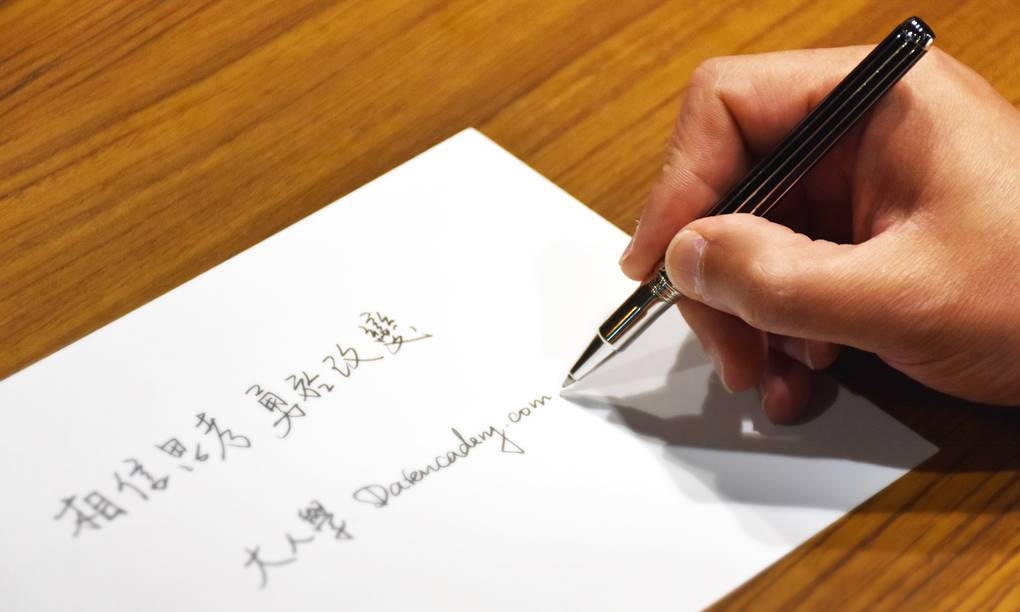 相信思考 勇於改變
大人學 Darencademy.com